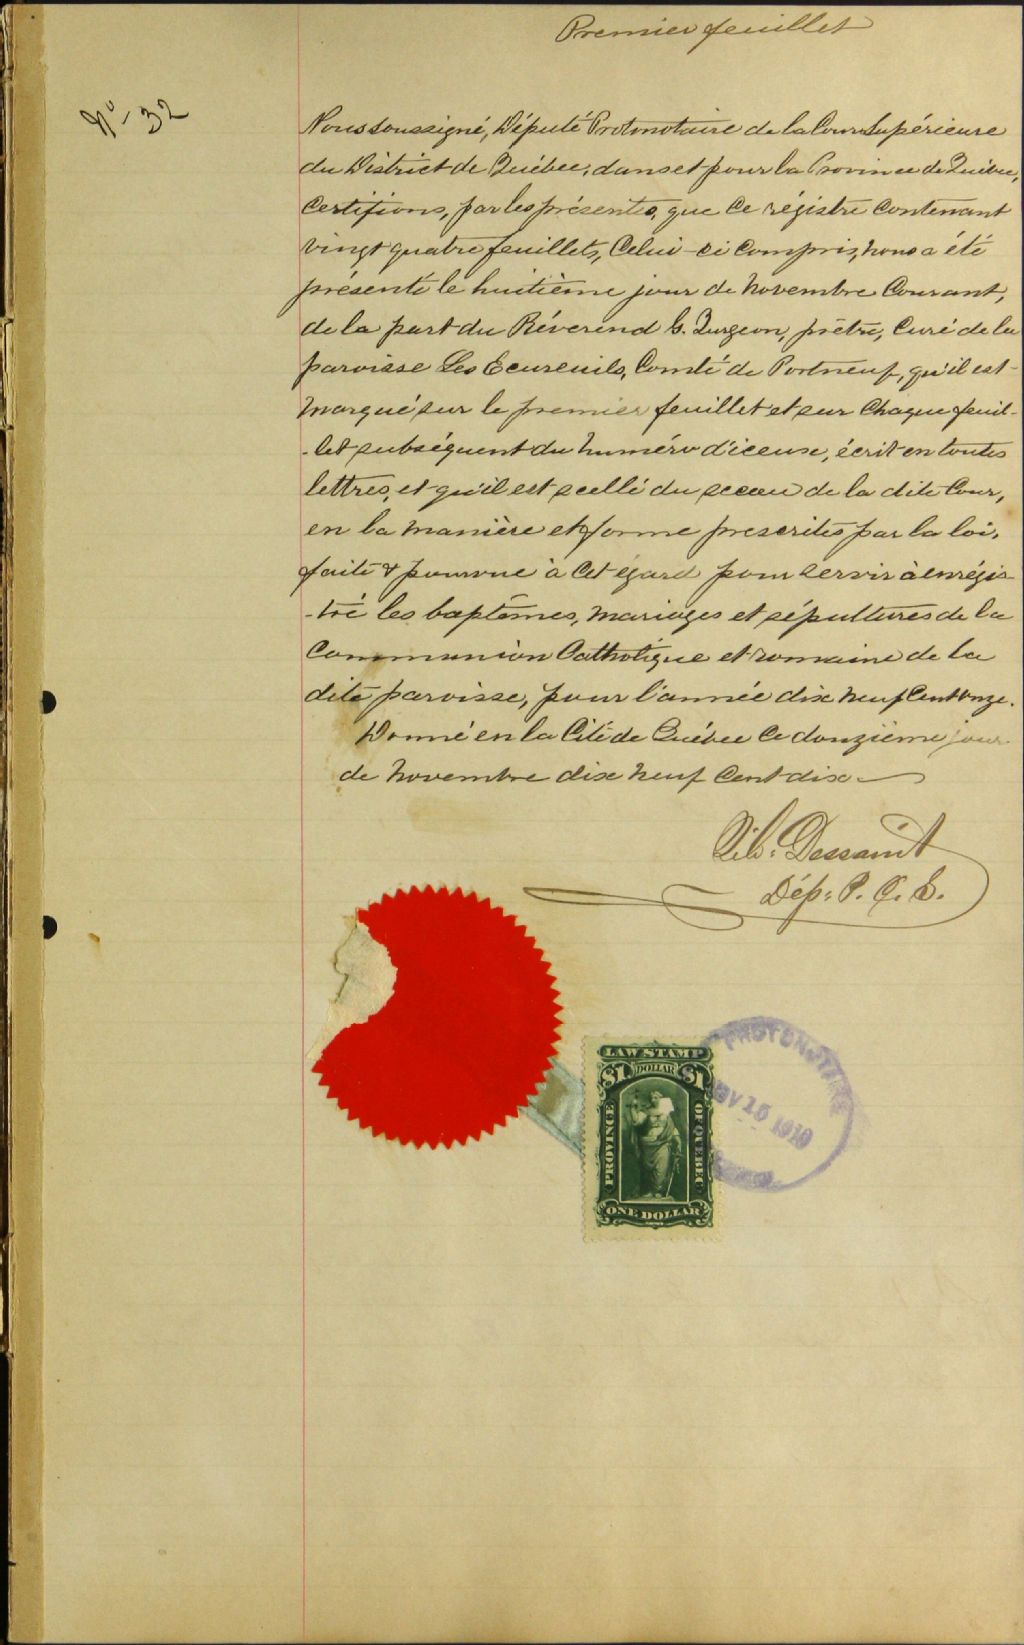 Premier feuillet
No 32
Nous soussigné, Député Protonotaire de la Cour Supérieure
du District de Québec, dans et pour la Province de Québec,
Certifions, par les présentes, que ce régistre contenant
vingt quatre feuillets, Celui-ci compris, nous a été
présenté le huitième jour de Novembre Courant,
de la part du Révérend G. Turgeon, prêtre, Curé de la
paroisse Les Ecureuils, Comté de Portneuf, qu'il est
marqué sur le premier feuillet et sur chaque feuil-
-let subséquent du numéro d'iceux, écrit en toutes
lettres, et qu'il est scellé du sceau de la dite Cour,
en la manière et forme prescrites par la loi,
faite & pourvue à cet égard pour servir à enrégis-
-tré les baptêmes, mariages et sépultures de la
Communion Catholique et romaine de la
dite paroisse, pour l'année dix neuf Cent onze.
Donné en la Cité de Québec ce douzième jour
de Novembre dix neuf Cent dix
Dessaint
Dép. P. C. S.
LAW STAMP
$1 DOLLAR $1
PROVINCE OF QUEBEC
ONE DOLLAR
PROTONOTAIRE
NOV 16 1910